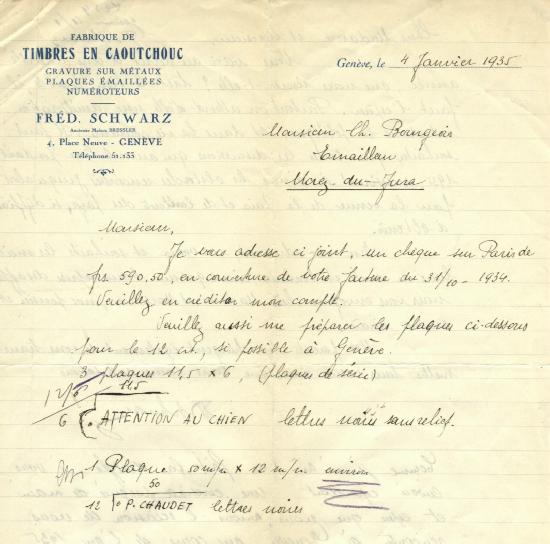 FABRIQUE DE
TIMBRES EN CAOUTCHOUC
GRAVURE SUR MÉTAUX
PLAQUES ÉMAILLÉES
NUMÉROTEURS
FRÉD. SCHWARZ
Ancienne Maison BRESSLER
4, Place Neuve - GENÈVE
Téléphone 51.155
Genève, le 4 Janvier 1935
Monsieur Ch. Bourgeois
Emailleur
Morez-du-Jura
Monsieur,
Je vous adresse ci joint, un chèque sur Paris de
frs. 590.50, en couverture de votre facture du 31/10 - 1934.
Veuillez en créditer mon compte.
Veuillez aussi me préparer les plaques ci-dessous
pour le 12 crt, si possible à Genève.
3 plaques 11,5 x 6, (plaques de série)
12/6 11,5
6 ATTENTION AU CHIEN lettres noires sans relief.
1 Plaque 50 m/m x 12 m/m environ
50
12 P. CHAUDET lettres noires